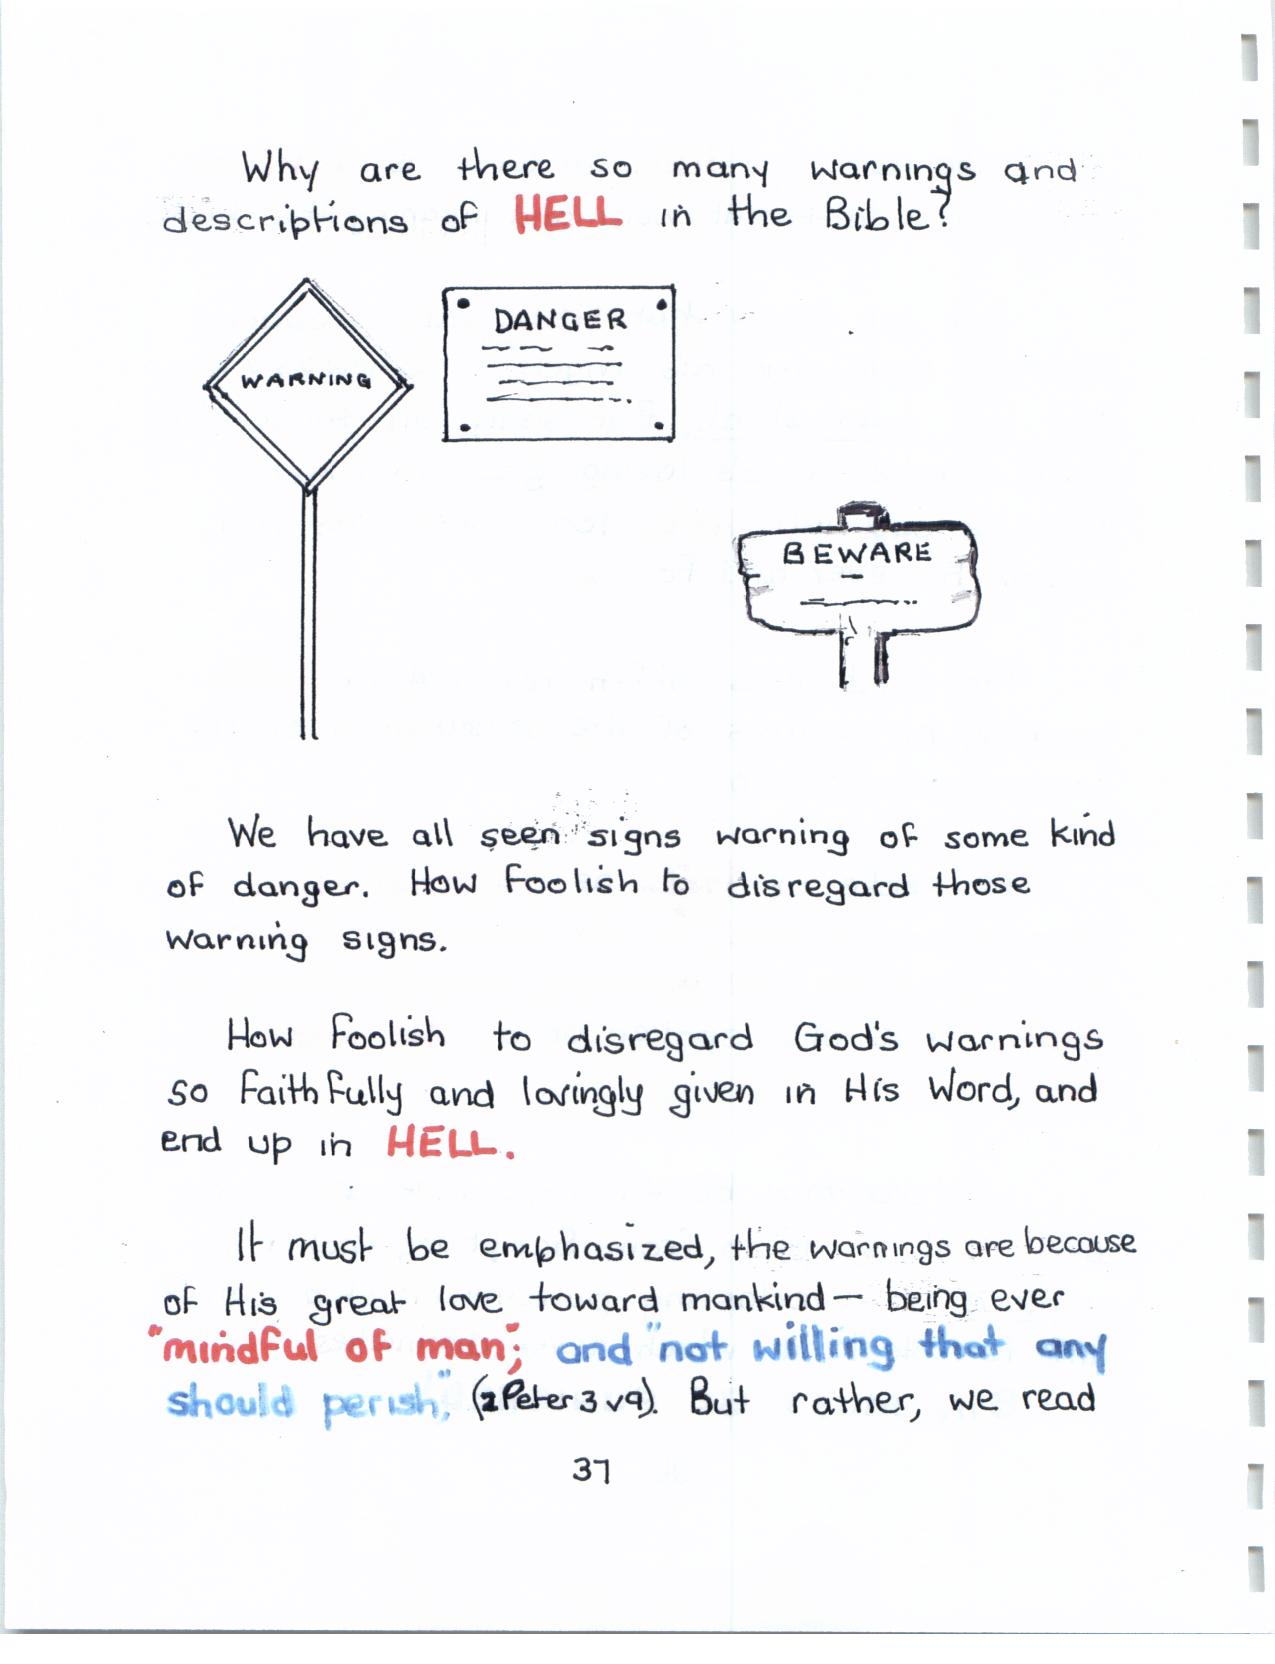 Why are there so many warnings and
descriptions of HELL in the Bible?
WARNING
DANGER
BEWARE
We have all seen signs warning of some kind
of danger. How foolish to disregard those
warning signs.
How foolish to disregard God's warnings
so faithfully and lovingly given in His Word, and
end up in HELL.
It must be emphasized, the warnings are because
of His great love toward mankind — being ever
"mindful of man"; and "not willing that any
should perish," (2 Peter 3 v9). But rather, we read
37